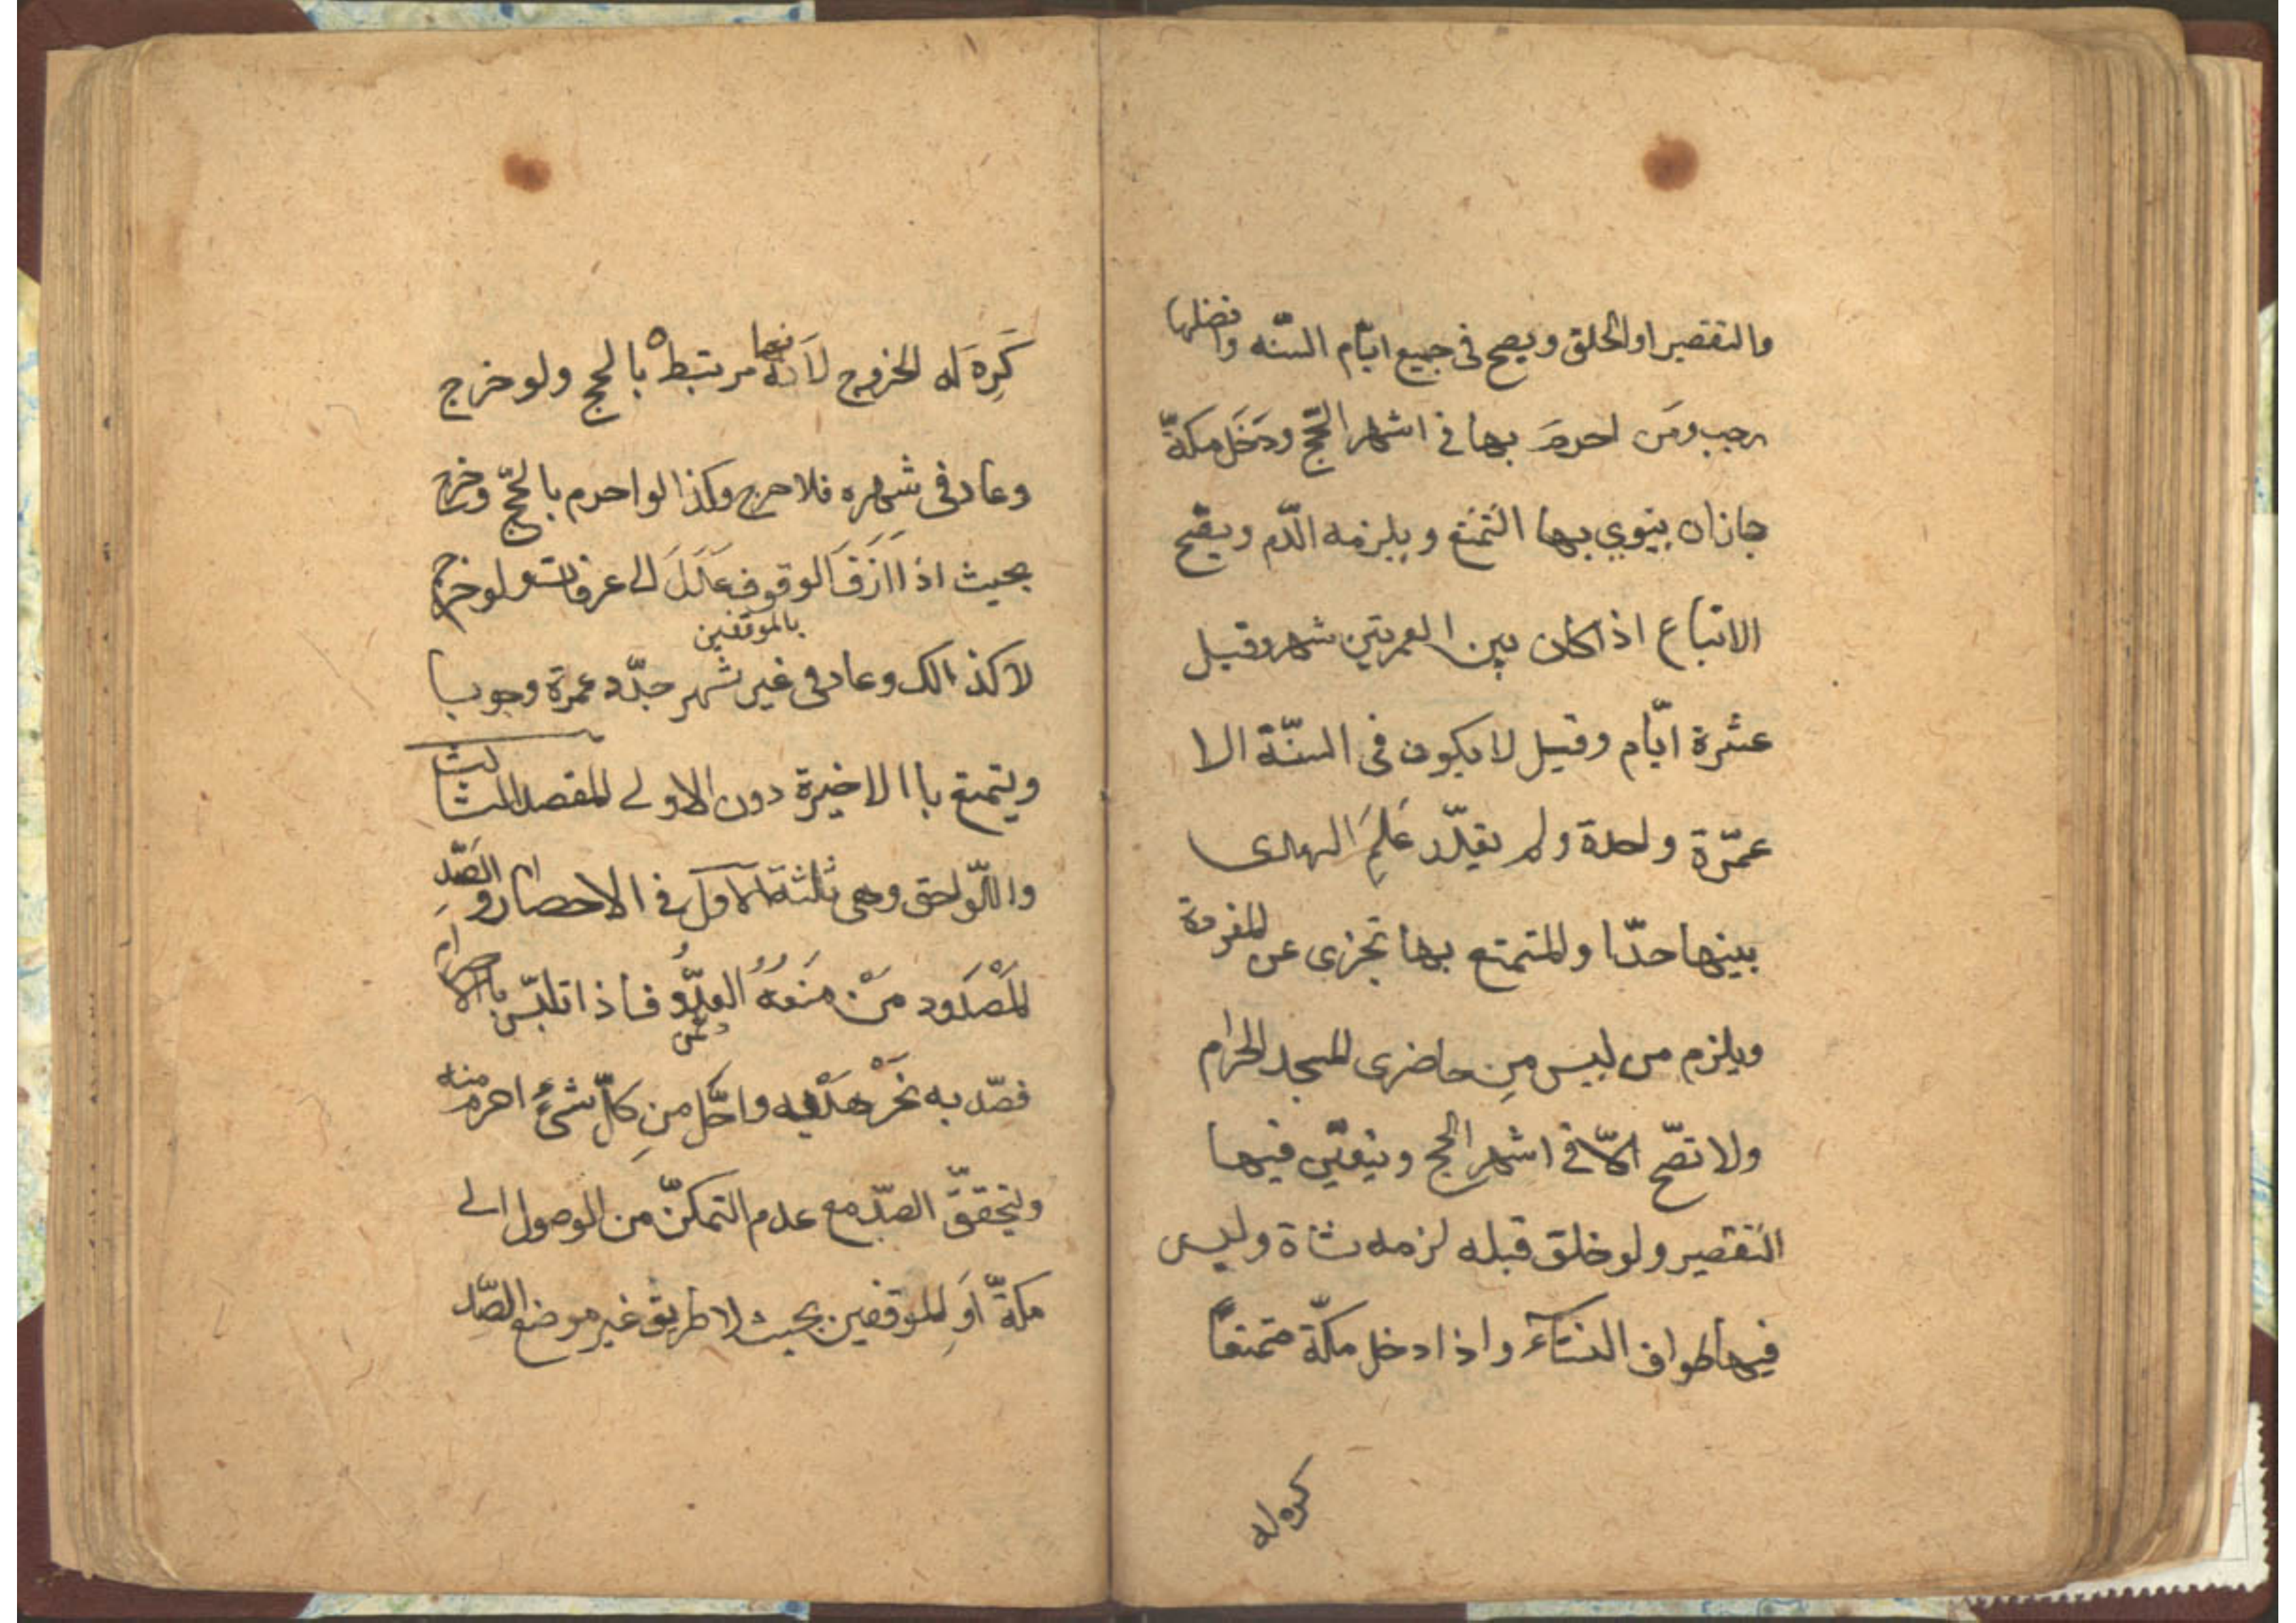 والتقصير او الحلق ويصح فى جميع ايّام السّنه وافضلها
رجب ومَن احرمَ بها فى اشهر الحّج ودَخَل مكةّ
جاز ان ينوي بها التمتع ويلزمه الدّم ويصّح
الاتباع اذا كان بين العمرتين شهر وقيل
عشرة ايّام وقيل لا يكون فى السنّة الا
عمّرة واحدة ولم يقيلّد عَلمِ الهدى
بينها حدّا والمتمتع بها تجزى عن المفردة
ويلزم من ليس مِن حاضرى المسجد الحرام
ولا تصّح الّا فى اشهر الحج ويتعيّن فيها
التقصير ولو حلق قبله لزمه شاة وليس
فيها طواف النسّآء واذا دخل مكّة متمتعاً
كره له
كَرِهَ له الخروج لاَنها مرتبطه بالحج ولو خرج
وعاد فى شهره فلا حرج وكذا لو احرم بالحّج وخرج
بحيث اذا اَزَفَ الوقوف عَدَلَ الى عرفات ولو خرج
بالموقفين
لا كذالك وعاد فى غير شهر جدّد عمرة وجوبا
ويتمتع باالاخيرة دون الاولى المقصد الثالث
واللّواحق وهى ثلثة الاول فى الاحصار والصّدِ
المَصْدَود مَنْ مَنَعهُ العدّوُ فاذا تلبّس بالاحرام
فصّد به نَحَرْ هَدْيه واحَّل مِن كلّ شئٍ احرم منه
ويتحققّ الصدّ مع عدم التمكنّ من الوصول الى
مكةّ اَو الموقفين بحيث لا طريق غير موضع الصّد